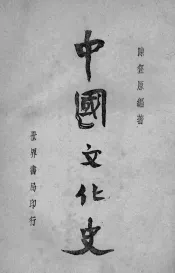 陳登原編著
中國文化史
世界書局印行